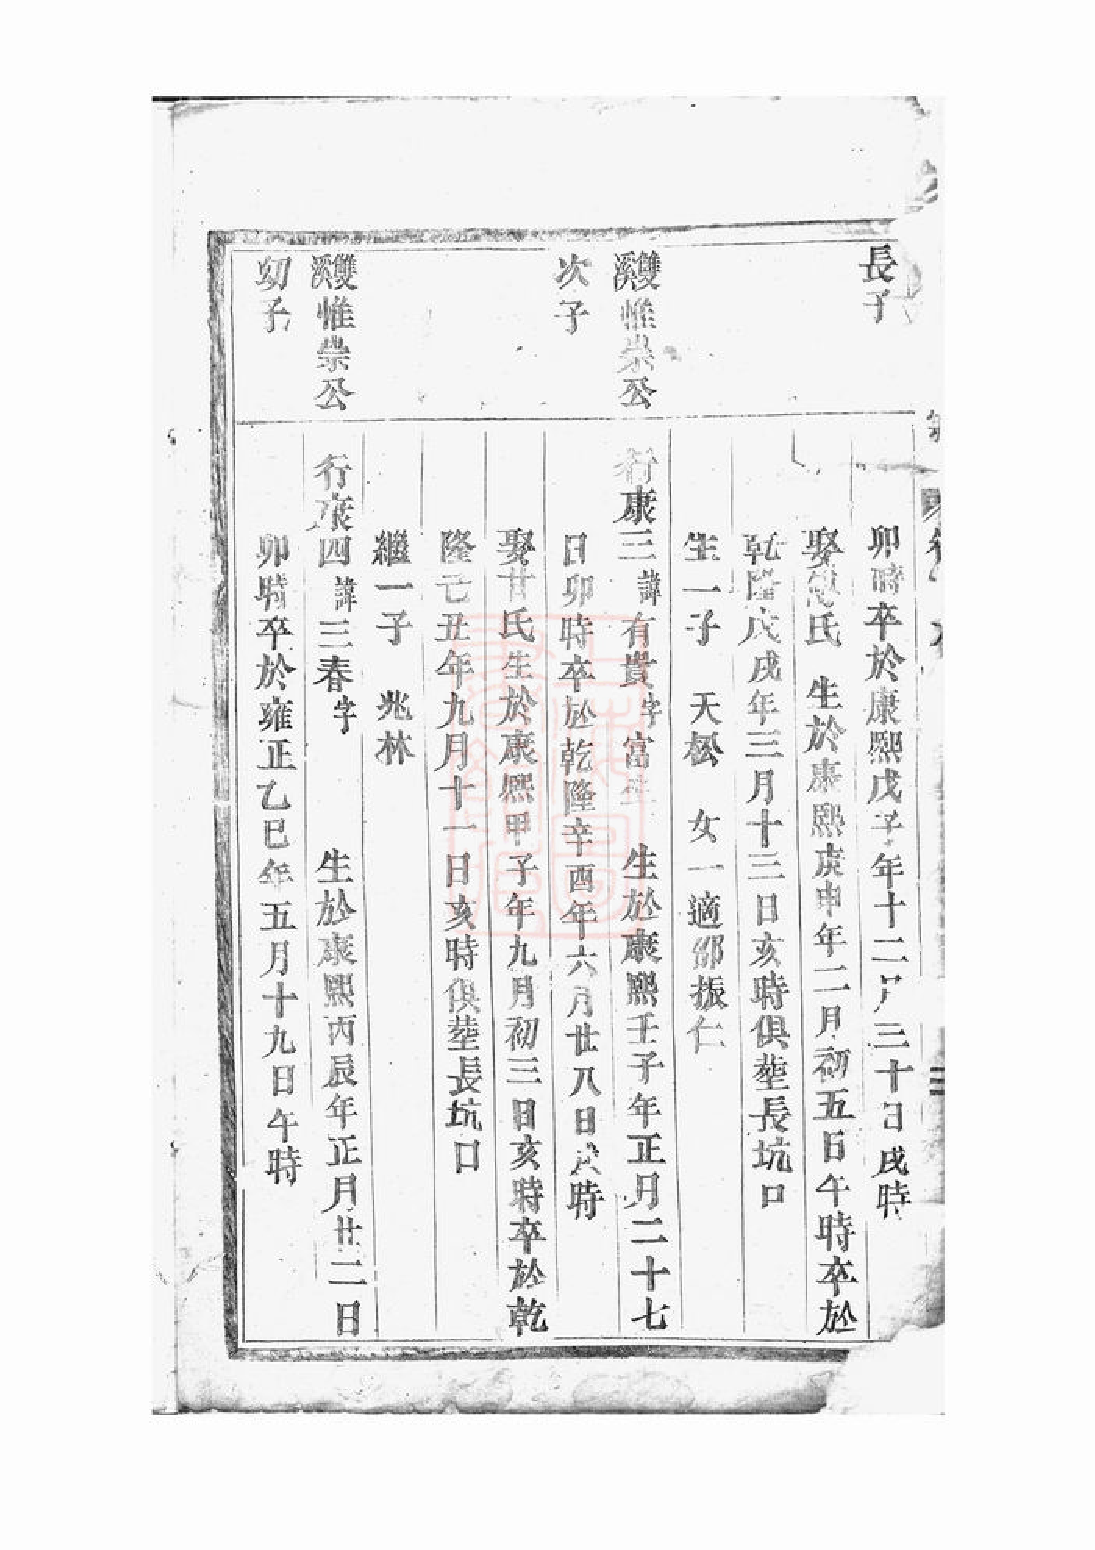 長子
卯時卒於康熙戊子年十二月三十日戌時
娶氏 生於康熙庚申年二月初五日午時卒於
乾隆戊戌年三月十三日亥時俱塟長坑口
生一子 天松 女一適鄒振仁
雙溪惟崇公
行康三 諱有貴字富生 生於康熙壬子年正月二十七
次子
日卯時卒於乾隆辛酉年六月廿八日戌時
娶甘氏生於康熙甲子年九月初三日亥時卒於乾
隆己丑年九月十一日亥時俱塟長坑口
繼一子 兆林
雙溪惟崇公
行康四 諱三春字 生於康熙丙辰年正月廿二日
幼子
卯時卒於雍正乙巳年五月十九日午時